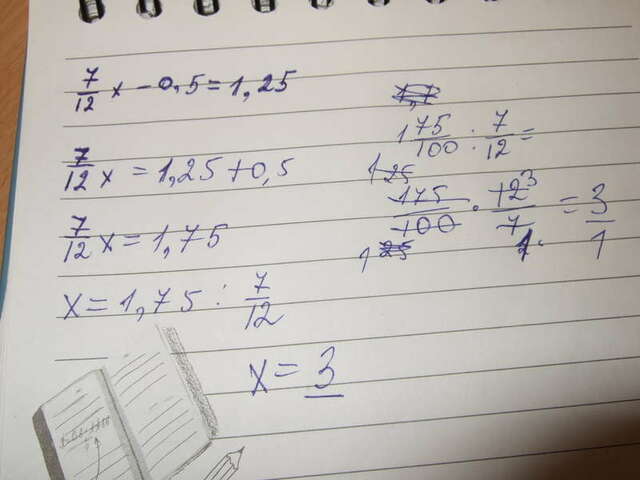 7/12 x - 0,5 = 1,25
7/12 x = 1,25 + 0,5
7/12 x = 1,75
x = 1,75 : 7/12
x = 3
1 75/100 : 7/12 =
1 25
175/100 · 12/7 = 3/1
3
1 25
1